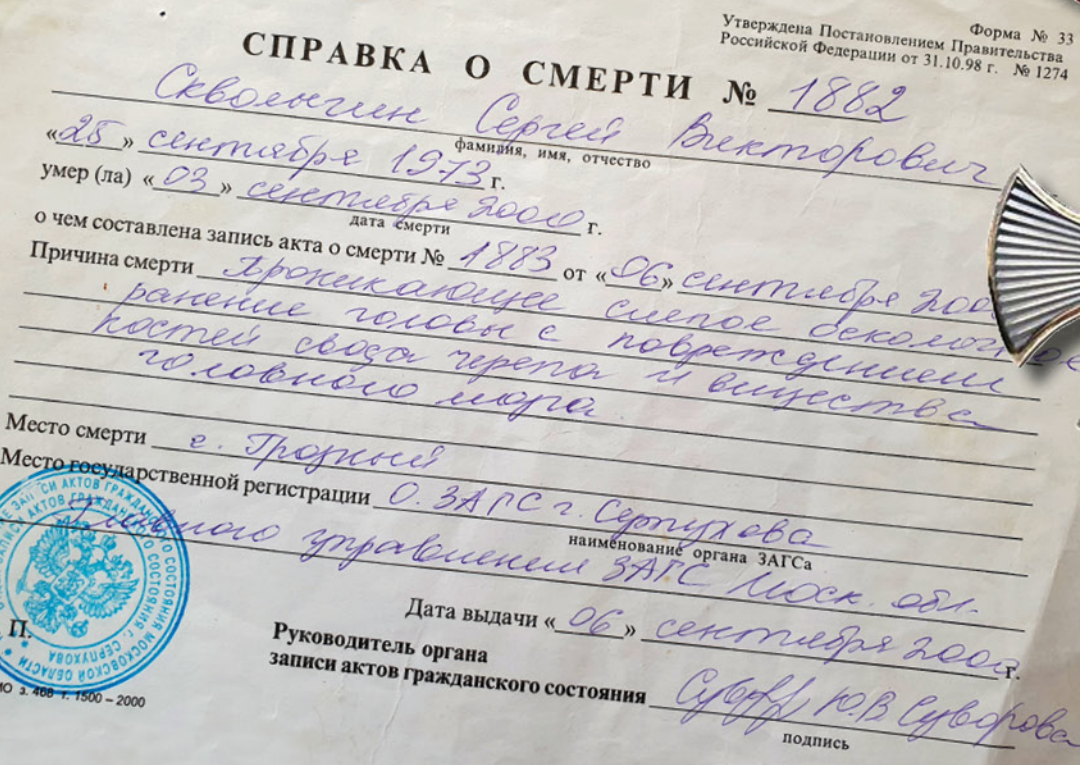 Форма № 33
Утверждена Постановлением Правительства
Российской Федерации от 31.10.98 г. № 1274
СПРАВКА О СМЕРТИ № 1882
Скволыгин Сергей Викторович
фамилия, имя, отчество
«25» сентября 1973 г.
умер (ла) «03» сентября 2000 г.
дата смерти
о чем составлена запись акта о смерти № 1883 от «06» сентября 200
Причина смерти Проникающее слепое осколочное
ранение головы с повреждением
костей свода черепа и вещества
головного мозга.
Место смерти г. Грозный
Место государственной регистрации О. ЗАГС г. Серпухова
наименование органа ЗАГСа
Главного управления ЗАГС Моск. обл.
Дата выдачи «06» сентября 2000 г.
П.
Руководитель органа
записи актов гражданского состояния Ю.В Суворова
подпись
з. 468 т. 1500 – 2000